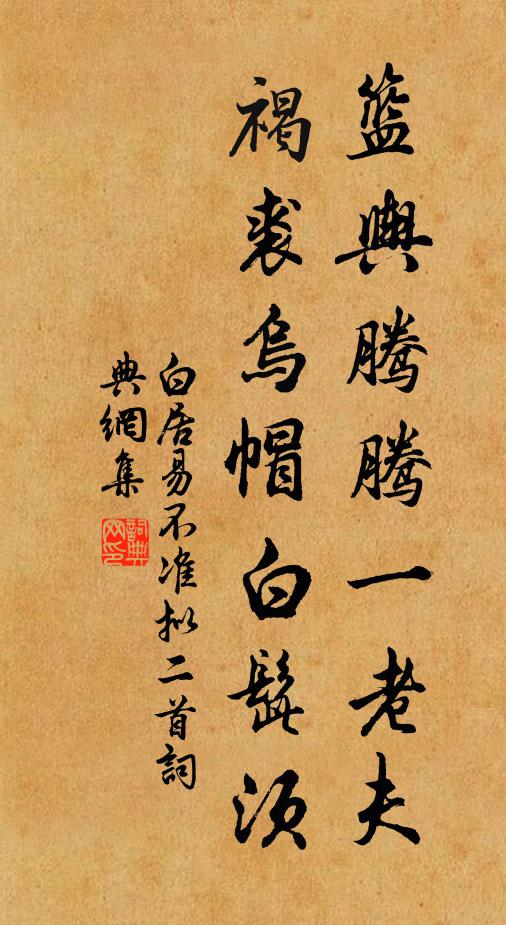 籃輿騰騰一老夫
褐裘烏帽白髭須
白居易不准拟二首詞
典網集
詞典網印